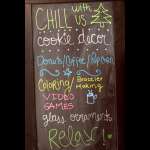 CHILL with us
cookie decor
Donuts/Coffee/Popcorn
Coloring/Bracelet Making
VIDEO GAMES
glass ornaments
Relax